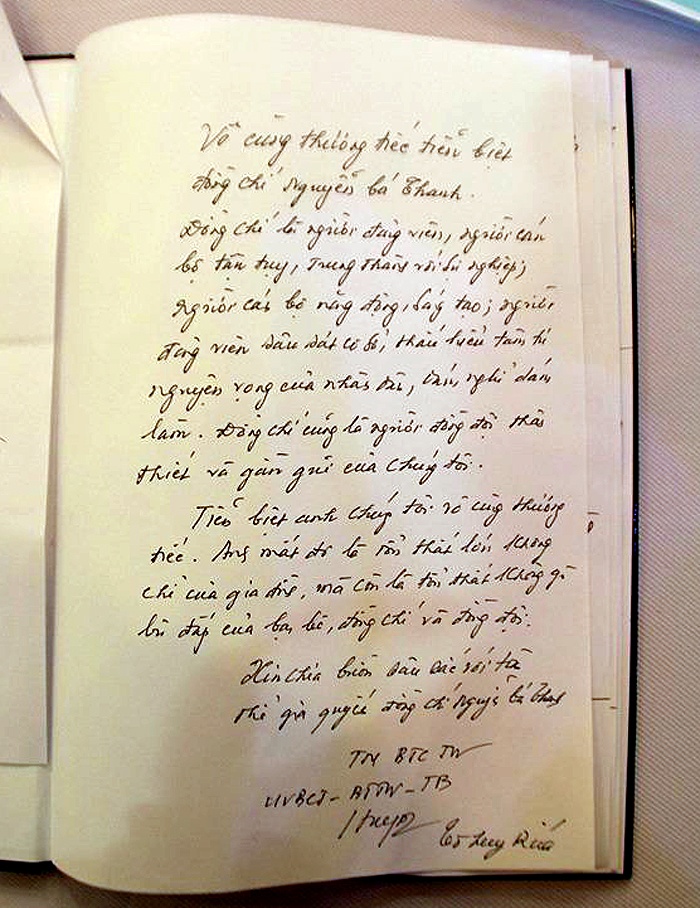 Vô cùng thương tiếc tiễn biệt
đồng chí Nguyễn bá Thanh.
Đồng chí là người đảng viên, người cán
bộ tận tụy, trung thành với sự nghiệp;
người cán bộ năng động, sáng tạo; người
đảng viên sâu sát cơ sở, thấu hiểu tâm tư
nguyện vọng của nhân dân, dám nghĩ dám
làm. Đồng chí cũng là người đồng đội thân
thiết và gần gũi của chúng tôi.
Tiễn biệt anh chúng tôi vô cùng thương
tiếc. Anh mất đi là tổn thất lớn không
chỉ của gia đình, mà còn là tổn thất không gì
bù đắp của bạn bè, đồng chí và đồng đội.
Xin chia buồn sâu sắc với toàn
thể gia quyến đồng chí Nguyễn bá Thanh
TM BTC TW
UVBCT - BTTW - TB
Tô Huy Rứa